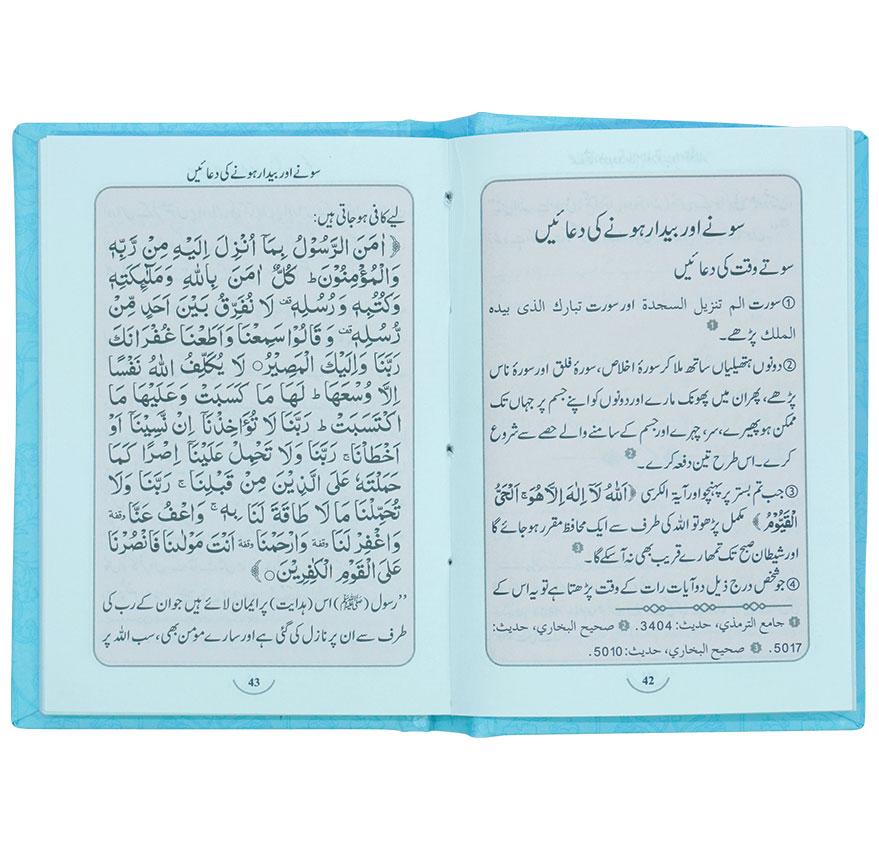 سونے اور بیدار ہونے کی دعائیں
سوتے وقت کی دعائیں
①سورت الم تنزیل السجدة اور سورت تبارك الذى بيده
الملك پڑھے۔❶
②دونوں ہتھیلیاں ساتھ ملا کر سورۂ اخلاص، سورۂ فلق اور سورۂ ناس
پڑھے، پھر ان میں پھونک مارے اور دونوں کو اپنے جسم پر جہاں تک
ممکن ہو پھیرے، سر، چہرے اور جسم کے سامنے والے حصے سے شروع
کرے۔ اس طرح تین دفعہ کرے۔❷
③جب تم بستر پر پہنچو اور آیۃ الکرسی ﴿اَللّٰهُ لَآ اِلٰهَ اِلَّا هُوَ ۚ اَلْحَيُّ
الْقَيُّوْمُ﴾ مکمل پڑھو تو اللہ کی طرف سے ایک محافظ مقرر ہو جائے گا
اور شیطان صبح تک تمھارے قریب بھی نہ آسکے گا۔❸
④جو شخص درج ذیل دو آیات رات کے وقت پڑھتا ہے تو یہ اس کے
❶ جامع الترمذي، حديث: 3404. ❷ صحيح البخاري، حديث:
5017. ❸ صحيح البخاري، حديث: 5010.
42
سونے اور بیدار ہونے کی دعائیں
لیے کافی ہو جاتی ہیں:
﴿اٰمَنَ الرَّسُوْلُ بِمَآ اُنْزِلَ اِلَيْهِ مِنْ رَّبِّهٖ
وَالْمُؤْمِنُوْنَ ؕ كُلٌّ اٰمَنَ بِاللّٰهِ وَمَلٰٓىِٕكَتِهٖ
وَكُتُبِهٖ وَرُسُلِهٖ ۫ لَا نُفَرِّقُ بَيْنَ اَحَدٍ مِّنْ
رُّسُلِهٖ ۫ وَقَالُوْا سَمِعْنَا وَاَطَعْنَا غُفْرَانَكَ
رَبَّنَا وَاِلَيْكَ الْمَصِيْرُ○ لَا يُكَلِّفُ اللّٰهُ نَفْسًا
اِلَّا وُسْعَهَا ؕ لَهَا مَا كَسَبَتْ وَعَلَيْهَا مَا
اكْتَسَبَتْ ؕ رَبَّنَا لَا تُؤَاخِذْنَآ اِنْ نَّسِيْنَآ اَوْ
اَخْطَاْنَا ۚ رَبَّنَا وَلَا تَحْمِلْ عَلَيْنَآ اِصْرًا كَمَا
حَمَلْتَهٗ عَلَى الَّذِيْنَ مِنْ قَبْلِنَا ۚ رَبَّنَا وَلَا
تُحَمِّلْنَا مَا لَا طَاقَةَ لَنَا بِهٖ ۚ وَاعْفُ عَنَّا وقفة
وَاغْفِرْ لَنَا وقفة وَارْحَمْنَا وقفة اَنْتَ مَوْلٰىنَا فَانْصُرْنَا
عَلَى الْقَوْمِ الْكٰفِرِيْنَ○﴾
’’رسول (ﷺ) اس (ہدایت) پر ایمان لائے ہیں جو ان کے رب کی
طرف سے ان پر نازل کی گئی ہے اور سارے مومن بھی، سب اللہ پر
43